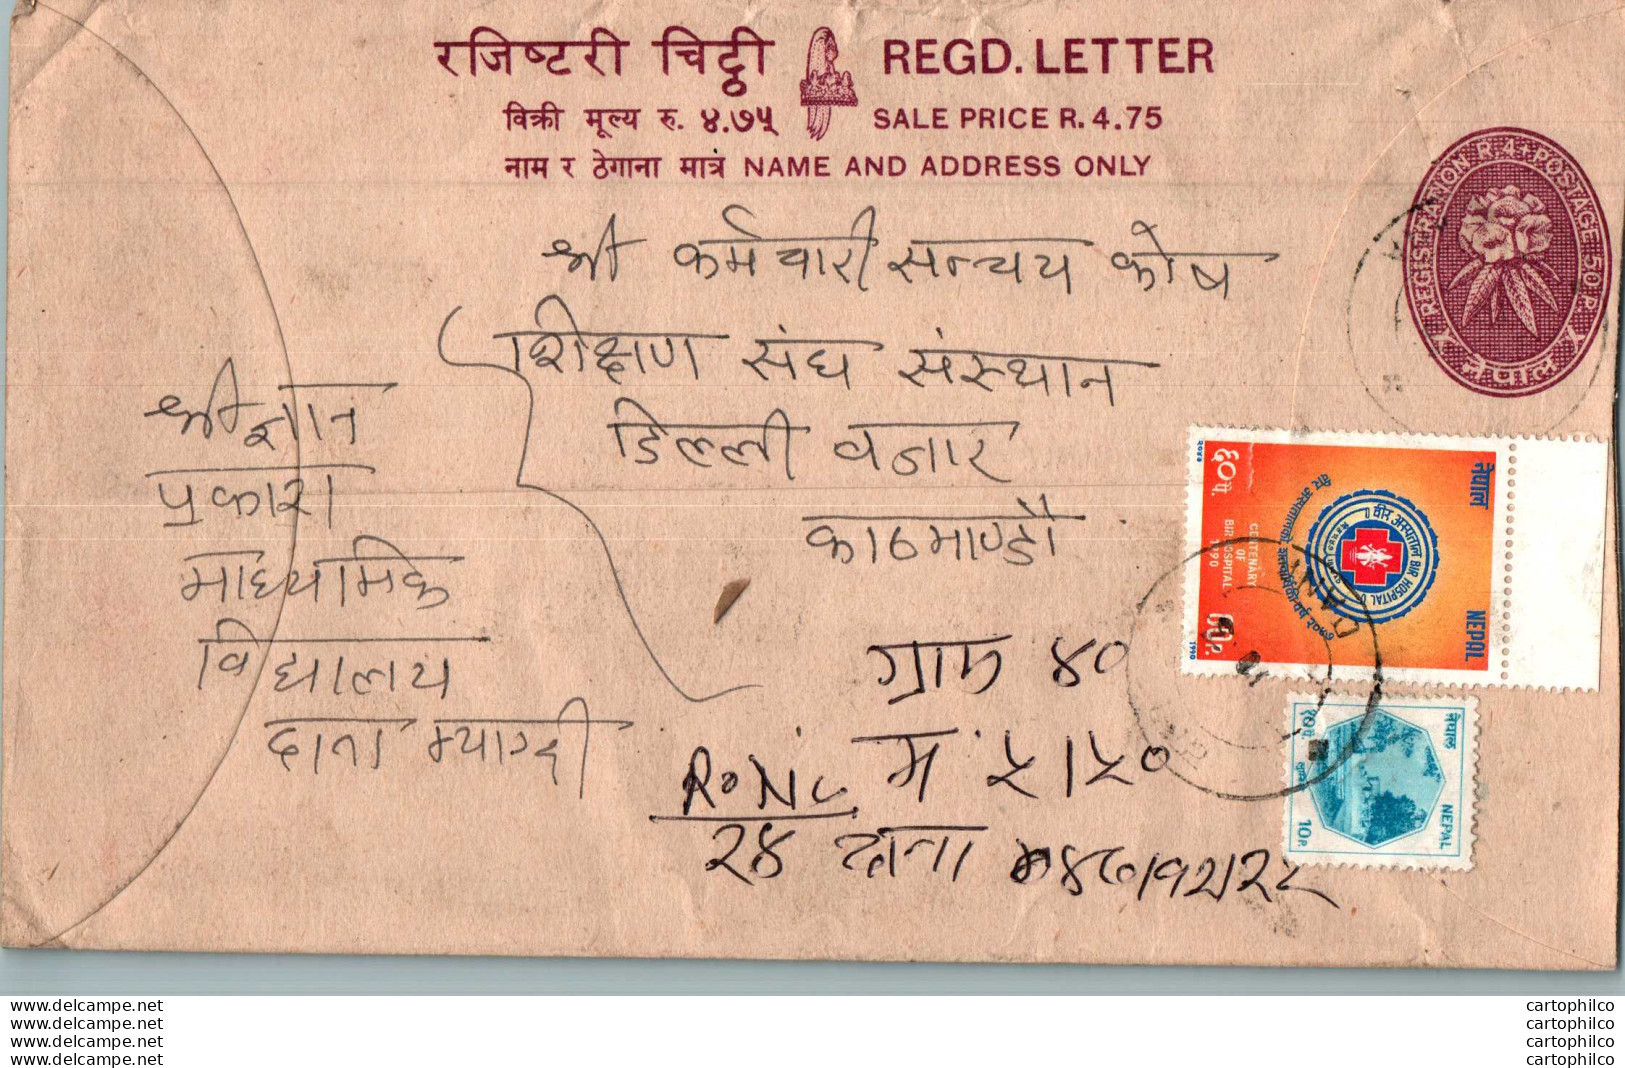 रजिष्टरी चिट्ठी REGD. LETTER
विक्री मूल्य रु. ४.७५ SALE PRICE R. 4.75
नाम र ठेगाना मात्रं NAME AND ADDRESS ONLY
REGISTRATION R.4. POSTAGE 50 P.
नेपाल
श्री कर्मचारी सन्चय कोष
शिक्षण संघ संस्थान
डिल्ली वजार
काठमाण्डौ
श्री ज्ञान
प्रकाश
माध्यामिक
विद्यालय
दाना म्याग्दी
ग्राम ४०
म ५।५०
२४ दाना
नेपाल NEPAL
६०प. 60P.
२०४७ 1990
CENTENARY
OF
BIR HOSPITAL
1990
वीर अस्पताल BIR HOSPITAL
नेपाल NEPAL
१०प. 10P.
www.delcampe.net
www.delcampe.net
www.delcampe.net
www.delcampe.net
cartophilco
cartophilco
cartophilco
cartophilco